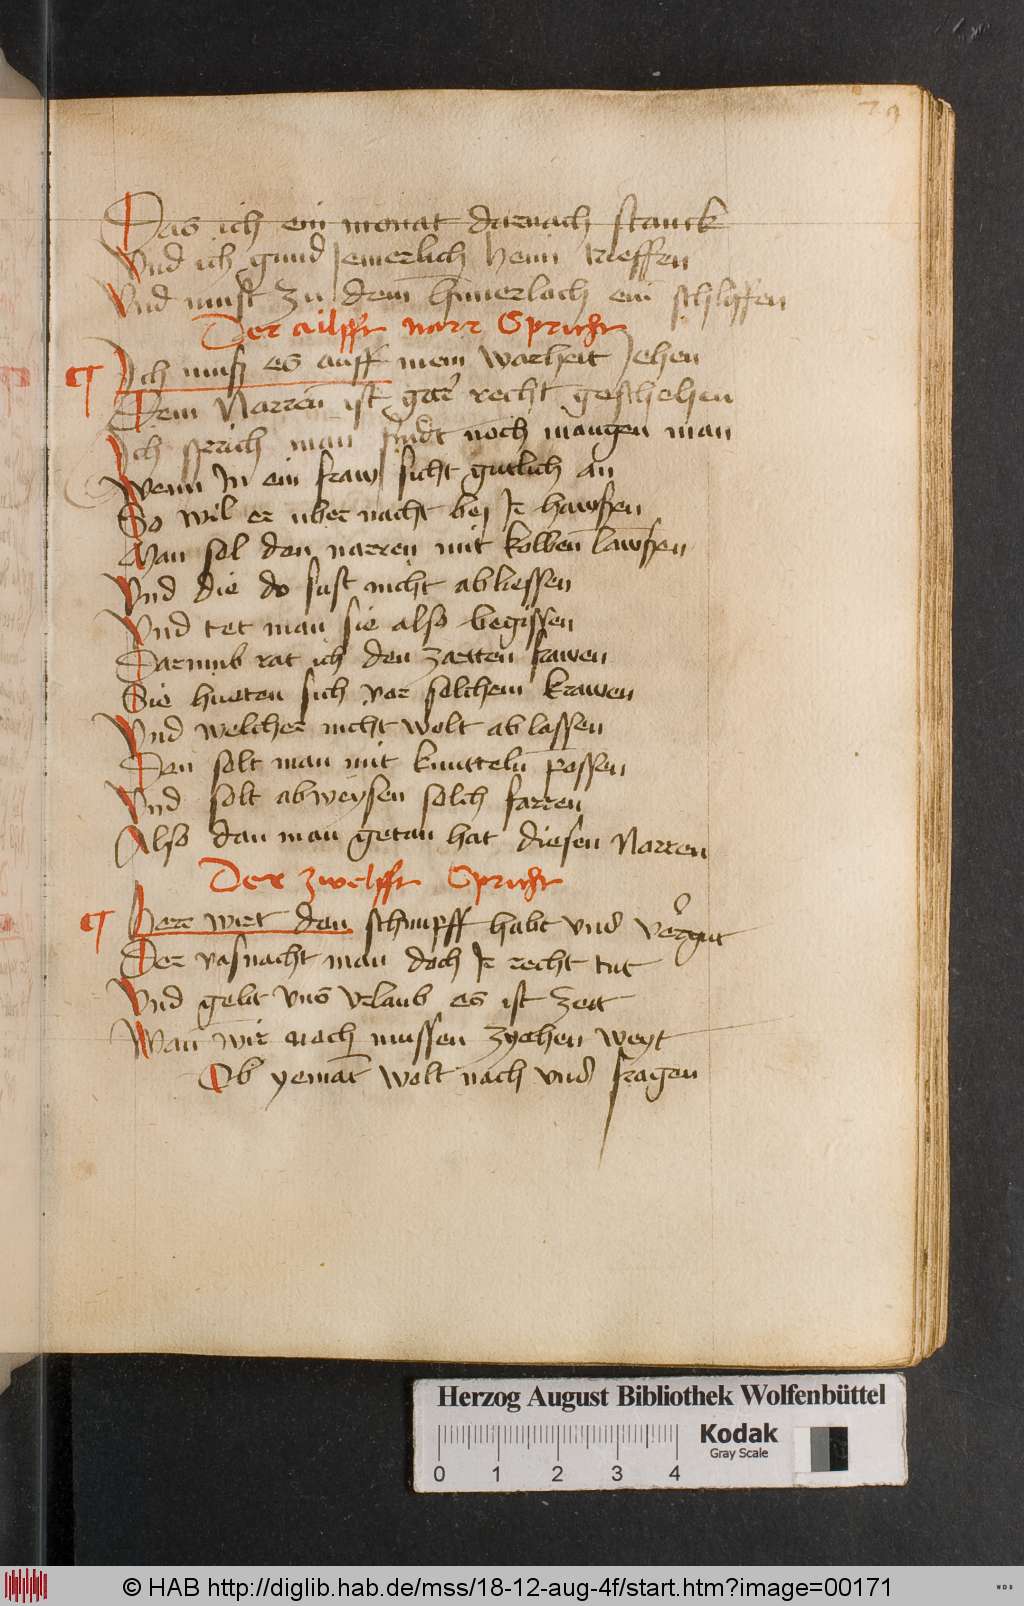 79
Das ich ein monat darnach stanck
Vnd ich gund Jemerlich
Vnd must zu dem hinerloch ein schlyfen
Der ailfft narr Spricht
Ich muß es auff mein warheit Jehen
Dem Narren ist gar recht geschehen
Ich sprich man findt noch mangen man
Wenn In ein fraw sicht gutlich an
So wil er uber nacht bej Ir hawsen
Man sol den narren mit kolben lawsen
Vnd die do sust nicht abliessen
Vnd tet man sie also begissen
Darumb rat ich den zartten frawen
Sie hueten sich vor solchem krawen
Vnd welcher nicht wolt ablassen
Den solt man mit knutteln possen
Vnd solt abweysen solch farren
Also dan man getan hat diesen Narren
Der zwelfft Spricht
Herr wirt den schimpff habt vnd vergut
Der vasnacht man doch Ir recht tut
Vnd gebt vns vrlaub es ist zeit
Wan wir noch mussen zyehen weyt
Ob yemāt wolt nach vnd fragen
Herzog August Bibliothek Wolfenbüttel
Kodak
Gray Scale
0 1 2 3 4
© HAB http://diglib.hab.de/mss/18-12-aug-4f/start.htm?image=00171